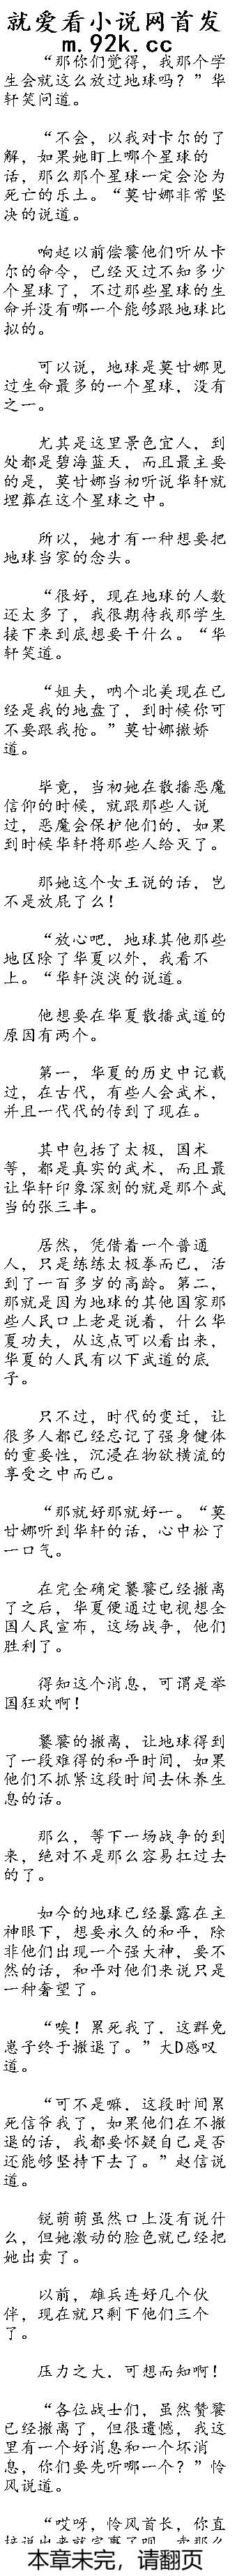 就爱看小说网首发
m.92k.cc
“那你们觉得，我那个学
生会就这么放过地球吗？”华
轩笑问道。
“不会，以我对卡尔的了
解，如果她盯上哪个星球的
话，那么那个星球一定会沦为
死亡的乐土。“莫甘娜非常坚
决的说道。
响起以前偿饕他们听从卡
尔的命令，已经灭过不知多少
个星球了，不过那些星球的生
命并没有哪一个能够跟地球比
拟的。
可以说，地球是莫甘娜见
过生命最多的一个星球，没有
之一。
尤其是这里景色宜人，到
处都是碧海蓝天，而且最主要
的是，莫甘娜当初听说华轩就
埋葬在这个星球之中。
所以，她才有一种想要把
地球当家的念头。
“很好，现在地球的人数
还太多了，我很期待我那学生
接下来到底想要干什么。“华
轩笑道。
“姐夫，呐个北美现在已
经是我的地盘了，到时候你可
不要跟我抢。”莫甘娜撒娇
道。
毕竟，当初她在散播恶魔
信仰的时候，就跟那些人说
过，恶魔会保护他们的，如果
到时候华轩将那些人给灭了。
那她这个女王说的话，岂
不是放屁了么！
“放心吧，地球其他那些
地区除了华夏以外，我看不
上。“华轩淡淡的说道。
他想要在华夏散播武道的
原因有两个。
第一，华夏的历史中记载
过，在古代，有些人会武术，
并且一代代的传到了现在。
其中包括了太极，国术
等，都是真实的武术，而且最
让华轩印象深刻的就是那个武
当的张三丰。
居然，凭借着一个普通
人，只是练练太极拳而已，活
到了一百多岁的高龄。第二，
那就是因为地球的其他国家那
些人民口上老是说着，什么华
夏功夫，从这点可以看出来，
华夏的人民有以下武道的底
子。
只不过，时代的变迁，让
很多人都已经忘记了强身健体
的重要性，沉浸在物欲横流的
享受之中而已。
“那就好那就好一。“莫
甘娜听到华轩的话，心中松了
一口气。
在完全确定饕餮已经撤离
了之后，华夏便通过电视想全
国人民宣布，这场战争，他们
胜利了。
得知这个消息，可谓是举
国狂欢啊！
饕餮的撤离，让地球得到
了一段难得的和平时间，如果
他们不抓紧这段时间去休养生
息的话。
那么，等下一场战争的到
来，绝对不是那么容易扛过去
的了。
如今的地球已经暴露在主
神眼下，想要永久的和平，除
非他们出现一个强大神，要不
然的话，和平对他们来说只是
一种奢望了。
“唉！累死我了，这群兔
崽子终于撤退了。”大D感叹
道。
“可不是嘛，这段时间累
死信爷我了，如果他们在不撤
退的话，我都要怀疑自己是否
还能够坚持下去了。”赵信说
道。
锐萌萌虽然口上没有说什
么，但她激动的脸色就已经把
她出卖了。
以前，雄兵连好几个伙
伴，现在就只剩下他们三个
了。
压力之大，可想而知啊！
“各位战士们，虽然赞餮
已经撤离了，但很遗憾，我这
里有一个好消息和一个坏消
息，你们要先听哪一个？”怜
风说道。
“哎呀，怜风首长，你直
接说出来就完事了呗，卖那么
本章未完，请翻页